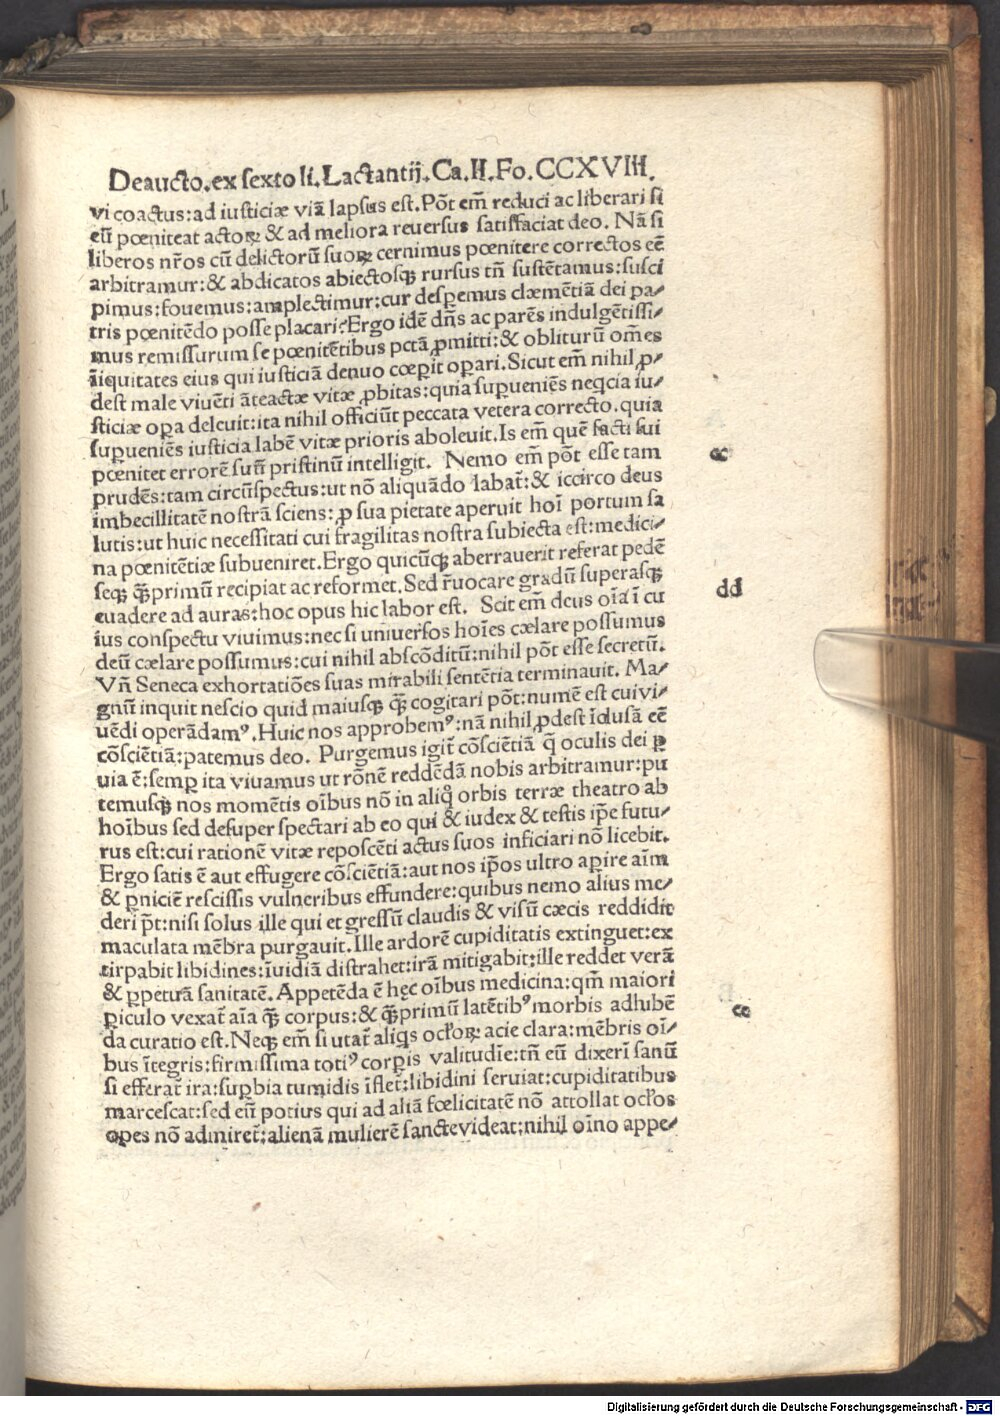 Deaucto.ex sexto li.Lactantij.Ca.II.Fo.CCXVIII.
vi coactus:ad iusticiæ viā lapsus est.Pōt em̄ reduci ac liberari si
eū pœniteat actoꝝ & ad meliora reuersus satisfaciat deo. Nā si
liberos nr̄os cū delictorū suoꝝ cernimus pœnitere correctos eē
arbitramur:& abdicatos abiectosqꝫ rursus tn̄ sustētamus:susci
pimus:fouemus:amplectimur:cur despemus clæmētiā dei pa⸗
tris pœnitēdo posse placari?Ergo idē dn̄s ac parēs indulgētissi⸗
mus remissurum se pœnitētibus pctā ꝓmitti:& obliturū om̄es
īiquitates eius qui iusticiā denuo cœperit operari.Sicut em̄ nihil ꝓ⸗
dest male viuēti āteactæ vitæ ꝓbitas:quia suꝑueniēs neqcia iu⸗
sticiæ oꝑa deleuit:ita nihil officiūt peccata vetera correcto.quia
suꝑueniēs iusticia labē vitæ prioris aboleuit.Is em̄ quē facti sui
pœnitet errorē suū pristinū intelligit. Nemo em̄ pōt esse tam
prudēs:tam circūspectus:ut nō aliquādo labat̄:& iccirco deus
imbecillitatē nostrā sciens:ꝓ sua pietate aperuit hoī portum sa
lutis:ut huic necessitati cui fragilitas nostra subiecta est:medici⸗
na pœnitētiæ subueniret.Ergo quicūqꝫ aberrauerit referat pedē
seqꝫ q̄ꝫprimū recipiat ac reformet.Sed r̄uocare gradū superasqꝫ
euadere ad auras:hoc opus hic labor est. Scit em̄ deus oīa ī cu
ius conspectu viuimus:nec si uniuersos hoīes cælare possumus
deū cælare possumus:cui nihil abscōditū:nihil pōt esse secretū.
Vn̄ Seneca exhortatiōes suas mirabili sentētia terminauit. Ma⸗
gnū inquit nescio quid maiusqꝫ q̄ꝫ cogitari pōt:numē est cui vi⸗
uēdi operādamꝰ.Huic nos approbemꝰ:nā nihil ꝓdest īclusā eē
cōsciētiā:patemus deo. Purgemus igit̄ cōsciētiā q̄ oculis dei ꝑ
uia ē:semꝑ ita viuamus ut rōnē reddēdā nobis arbitramur:pu
temusqꝫ nos momētis oībus nō in aliq̊ orbis terræ theatro ab
hoībus sed desuper spectari ab eo qui & iudex & testis ip̄e futu⸗
rus est:cui rationē vitæ reposcēti actus suos inficiari nō licebit.
Ergo satis ē aut effugere cōsciētiā:aut nos ip̄os ultro aꝑire aīm
& ꝑniciē rescissis vulneribus effundere:quibus nemo alius me⸗
deri p̄t:nisi solus ille qui et gressū claudis & visū cæcis reddidit
maculata mēbra purgauit.Ille ardorē cupiditatis extinguet:ex
tirpabit libidines:īuidiā distrahet:irā mitigabit:ille reddet verā
& ꝑpetuā sanitatē.Appetēda ē hęc oībus medicina:qm̄ maiori
ꝑiculo vexat̄ aīa q̄ꝫ corpus:& q̄ꝫprimū latētibꝰ morbis adhibē
da curatio est.Neqꝫ em̄ si utat̄ aliqs oclorꝝ acie clara:mēbris oī⸗
bus ītegris:firmissima totiꝰ corꝑis valitudīe:tn̄ eū dixerī sanū
si efferat̄ ira:suꝑbia tumidis īflet̄:libidini seruiat:cupiditatibus
marcescat:sed eū potius qui ad aliā fœlicitatē nō attollat ocl̄os
opes nō admiret̄:alienā mulierē sancte videat:nihil oīno appe⸗
cc
dd
ee
Digitalisierung gefördert durch die Deutsche Forschungsgemeinschaft - DFG